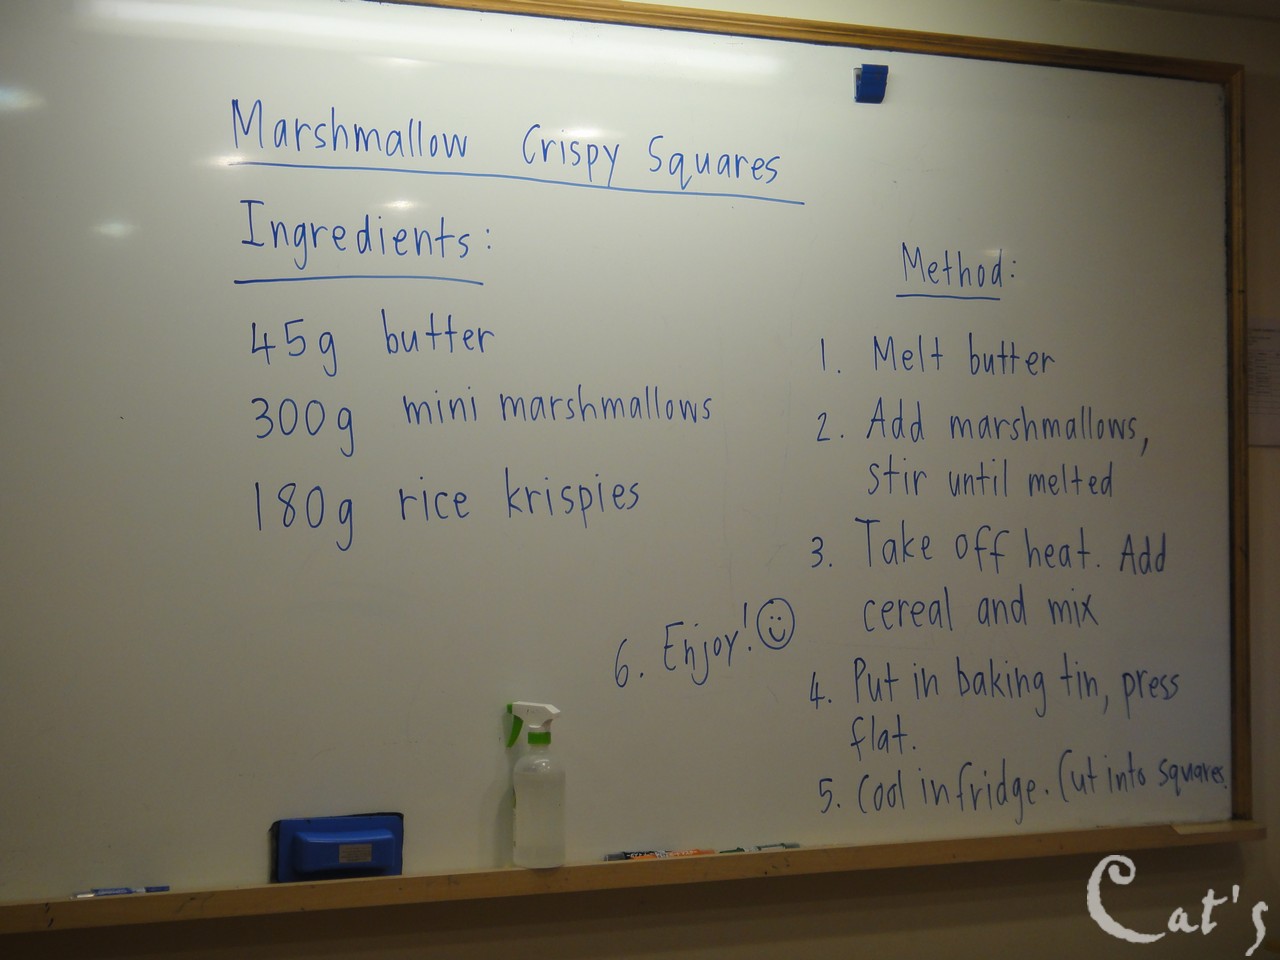 Marshmallow Crispy Squares
Ingredients:
45g butter
300g mini marshmallows
180g rice krispies
Method:
1. Melt butter
2. Add marshmallows,
stir until melted
3. Take off heat. Add
cereal and mix
4. Put in baking tin, press
flat.
5. Cool in fridge. Cut into squares.
6. Enjoy!
Cat's